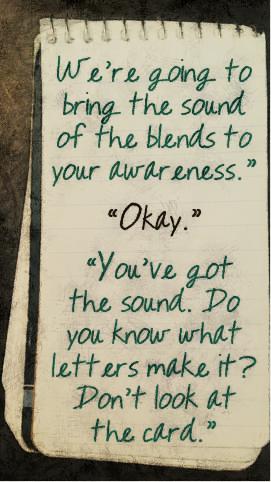 We're going to
bring the sound
of the blends to
your awareness."
"Okay."
"You've got
the sound. Do
you know what
letters make it?
Don't look at
the card."